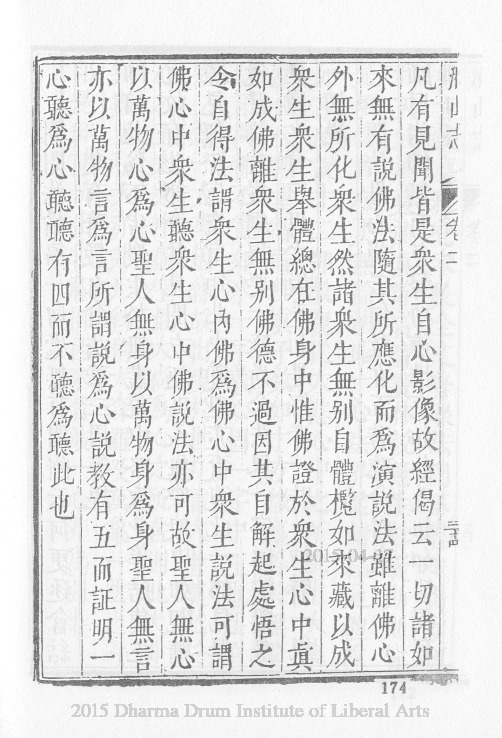 山志
卷二
凡有見聞皆是衆生自心影像故經偈云一切諸如
來無有說佛法隨其所應化而爲演說法雖離佛心
外無所化衆生然諸衆生無别自體欖如來藏以成
衆生衆生舉體總在佛身中惟佛證於衆生心中真
如成佛離衆生無别佛德不過因其自解起處悟之
令自得法謂衆生心內佛爲佛心中衆生說法可謂
佛心中衆生聽衆生心中佛說法亦可故聖人無心
以萬物心爲心聖人無身以萬物身爲身聖人無言
亦以萬物言爲言所謂說爲心說教有五而証明一
心聽爲心聽聽有四而不聽爲聽此也
174
2015 Dharma Drum Institute of Liberal Arts